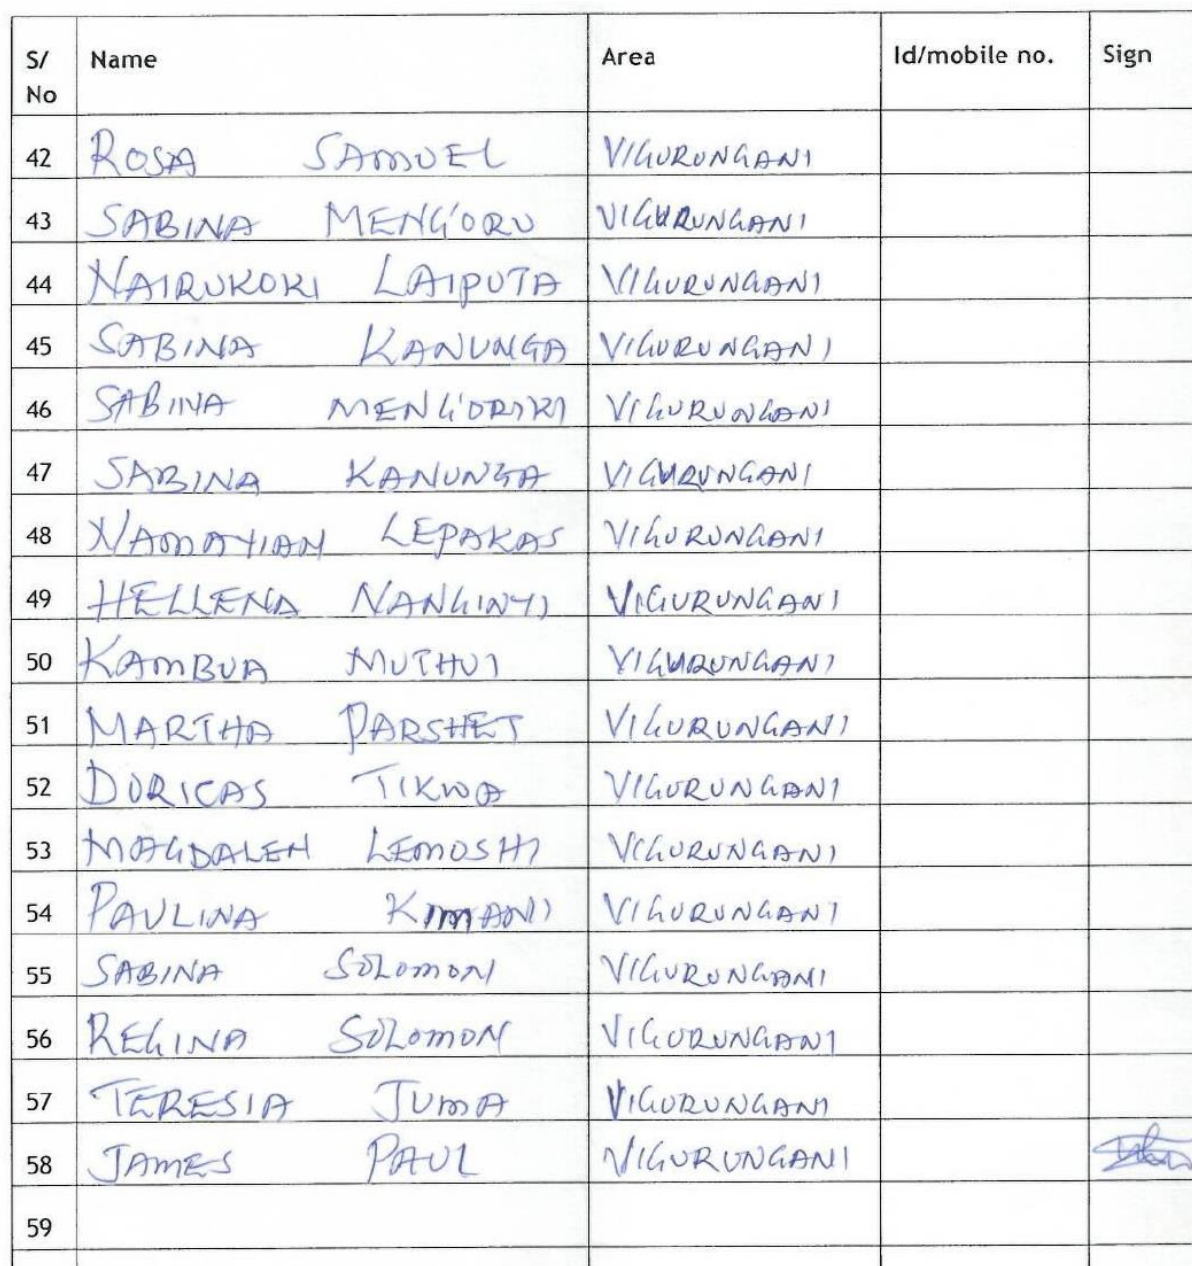 S/No Name Area Id/mobile no. Sign
42 ROSA SAMUEL VIGURUNGANI
43 SABINA MENG'ORU VIGURUNGANI
44 NAIRUKOKI LAIPUTA VIGURUNGANI
45 SABINA KANUNGA VIGURUNGANI
46 SABINA MENG'ORIKI VIGURUNGANI
47 SABINA KANUNGA VIGURUNGANI
48 NAMAYIAN LEPAKAS VIGURUNGANI
49 HELLENA NANGINYI VIGURUNGANI
50 KAMBUA MUTHUI VIGURUNGANI
51 MARTHA PARSHET VIGURUNGANI
52 DORICAS TIKWA VIGURUNGANI
53 MAGDALEN LEMOSHI VIGURUNGANI
54 PAULINA KIMANI VIGURUNGANI
55 SABINA SOLOMON VIGURUNGANI
56 REGINA SOLOMON VIGURUNGANI
57 TERESIA JUMA VIGURUNGANI
58 JAMES PAUL VIGURUNGANI
59